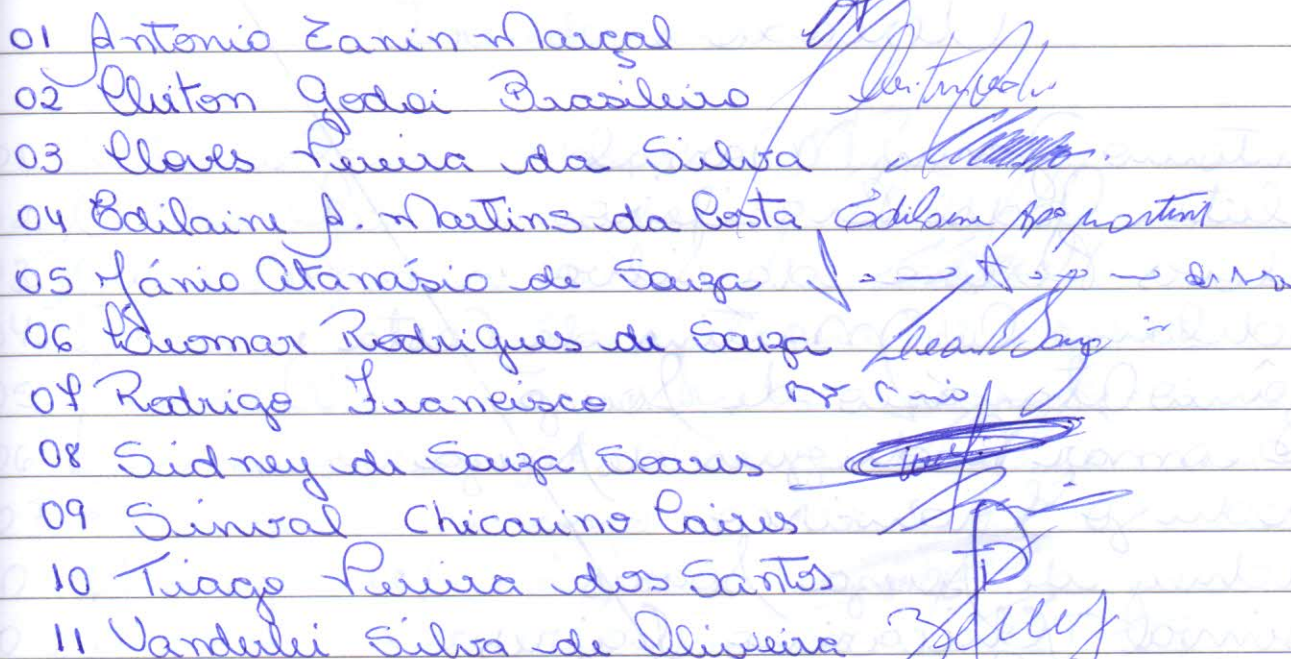 01 Antonio Zanin Marçal
02 Cleiton Godoi Brasileiro
03 Cloves Pereira da Silva
04 Edilaine A. Martins da Costa Edilaine Apª Martins
05 Jânio Atanásio de Souza
06 Leomar Rodrigues de Souza
07 Rodrigo Francisco
08 Sidney de Souza Soares
09 Sinval Chicarino Caires
10 Tiago Pereira dos Santos
11 Vanderlei Silva de Oliveira